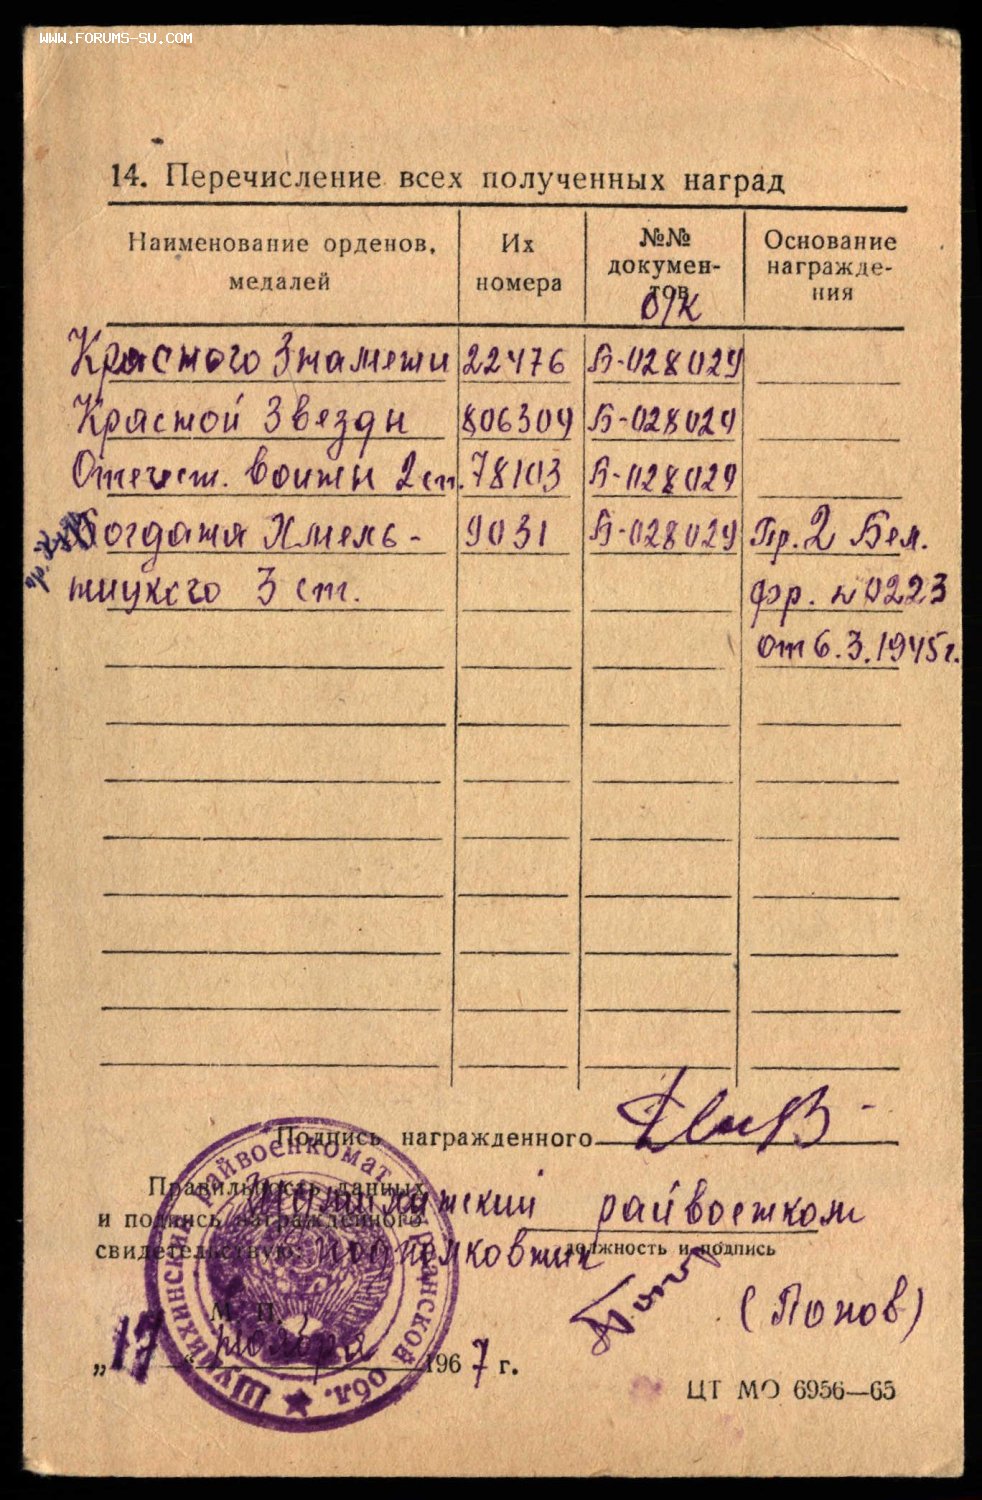 WWW.FORUMS-SU.COM
14. Перечисление всех полученных наград
Наименование орденов, медалей
Их номера
№№ документов
о/к
Основание награждения
Красного Знамени 22476 Б-028029
Красной Звезды 806309 Б-028029
Отечест. войны 2 ст. 78103 Б-028029
Богдана Хмель- 9031 Б-028029 Пр. 2 Бел.
ницкого 3 ст. фр. № 0223
от 6.3.1945г.
Подпись награжденного
Правильность данных
и подпись награжденного Шумихинский райвоенком
свидетельствую: подполковник
должность и подпись
(Попов)
М. П.
„17“ ноября 1967 г.
Шумихинский райвоенкомат Курганской обл.
ЦТ МО 6956—65